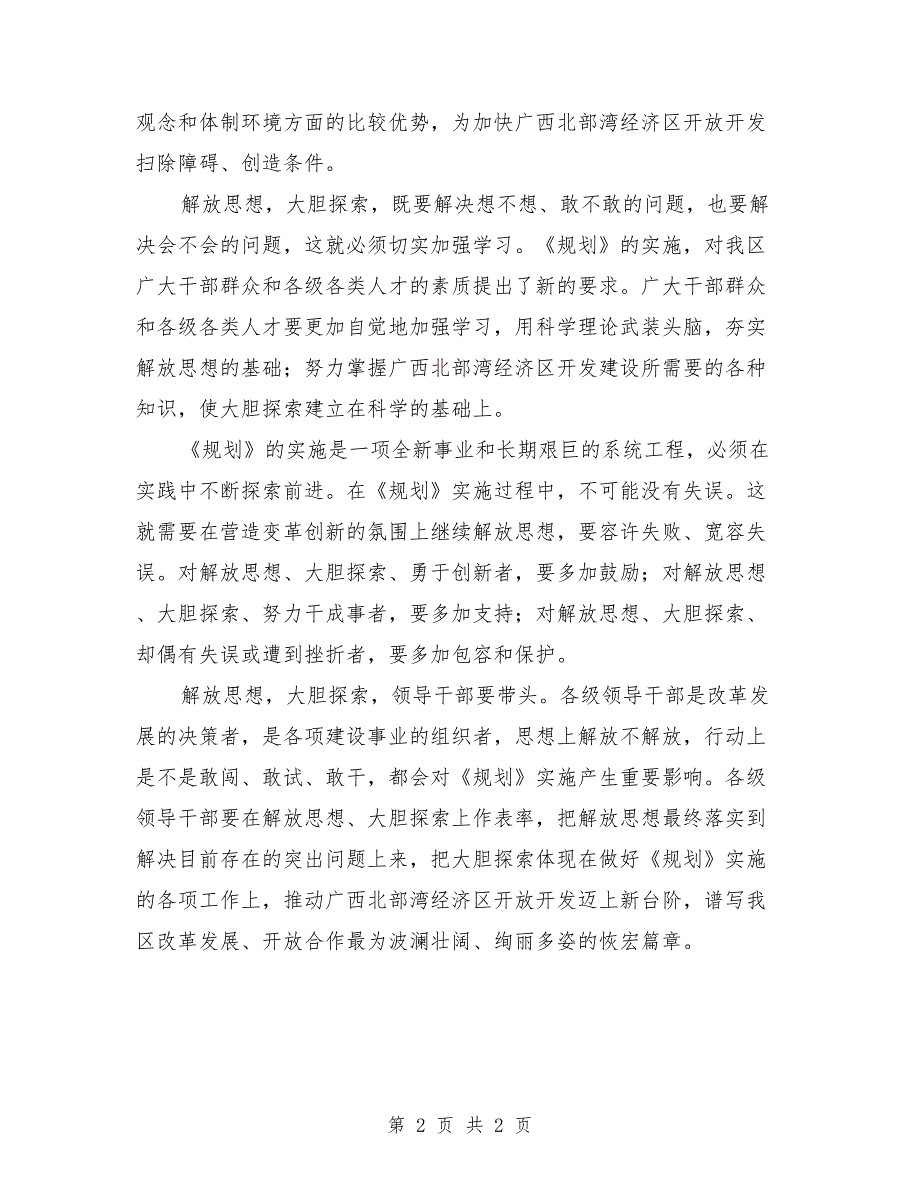 观念和体制环境方面的比较优势，为加快广西北部湾经济区开放开发
扫除障碍、创造条件。
解放思想，大胆探索，既要解决想不想、敢不敢的问题，也要解
决会不会的问题，这就必须切实加强学习。《规划》的实施，对我区
广大干部群众和各级各类人才的素质提出了新的要求。广大干部群众
和各级各类人才要更加自觉地加强学习，用科学理论武装头脑，夯实
解放思想的基础；努力掌握广西北部湾经济区开发建设所需要的各种
知识，使大胆探索建立在科学的基础上。
《规划》的实施是一项全新事业和长期艰巨的系统工程，必须在
实践中不断探索前进。在《规划》实施过程中，不可能没有失误。这
就需要在营造变革创新的氛围上继续解放思想，要容许失败、宽容失
误。对解放思想、大胆探索、勇于创新者，要多加鼓励；对解放思想
、大胆探索、努力干成事者，要多加支持；对解放思想、大胆探索、
却偶有失误或遭到挫折者，要多加包容和保护。
解放思想，大胆探索，领导干部要带头。各级领导干部是改革发
展的决策者，是各项建设事业的组织者，思想上解放不解放，行动上
是不是敢闯、敢试、敢干，都会对《规划》实施产生重要影响。各级
领导干部要在解放思想、大胆探索上作表率，把解放思想最终落实到
解决目前存在的突出问题上来，把大胆探索体现在做好《规划》实施
的各项工作上，推动广西北部湾经济区开放开发迈上新台阶，谱写我
区改革发展、开放合作最为波澜壮阔、绚丽多姿的恢宏篇章。
第 2 页 共 2 页